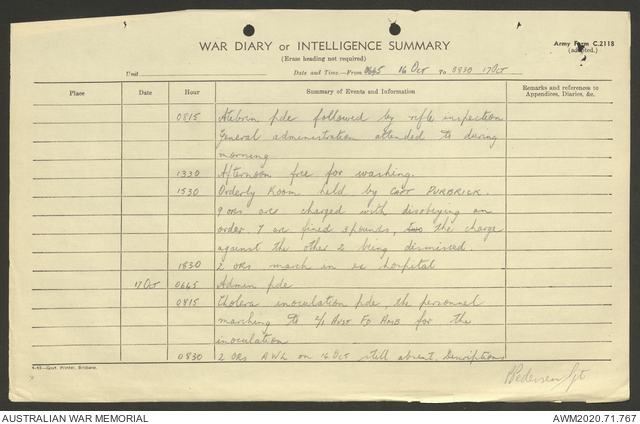 WAR DIARY or INTELLIGENCE SUMMARY
(Erase heading not required)
Army Form C.2118
(adapted.)
Unit
Date and Time.—From 0645 16 Oct To 0830 17 Oct
Place Date Hour Summary of Events and Information Remarks and references to
Appendices, Diaries, &c.
0815 Atebrin pde followed by rifle inspection
General administration attended to during
morning
1330 Afternoon free for washing.
1530 Orderly Room held by CAPT PURBRICK.
9 ORs are charged with disobeying an
order. 7 are fined 3 pounds, two the charge
against the other 2 being dismissed
1830 2 ORs march in ex hospital
17 Oct 0645 Admin pde
0815 Cholera inoculation pde, the personnel
marching to 2/1 Aust Fd Amb for the
inoculation
0830 2 ORs AWL on 16 Oct still absent. Descriptions
4-45—Govt. Printer, Brisbane.
Pedersen Sgt
AUSTRALIAN WAR MEMORIAL
AWM2020.71.767